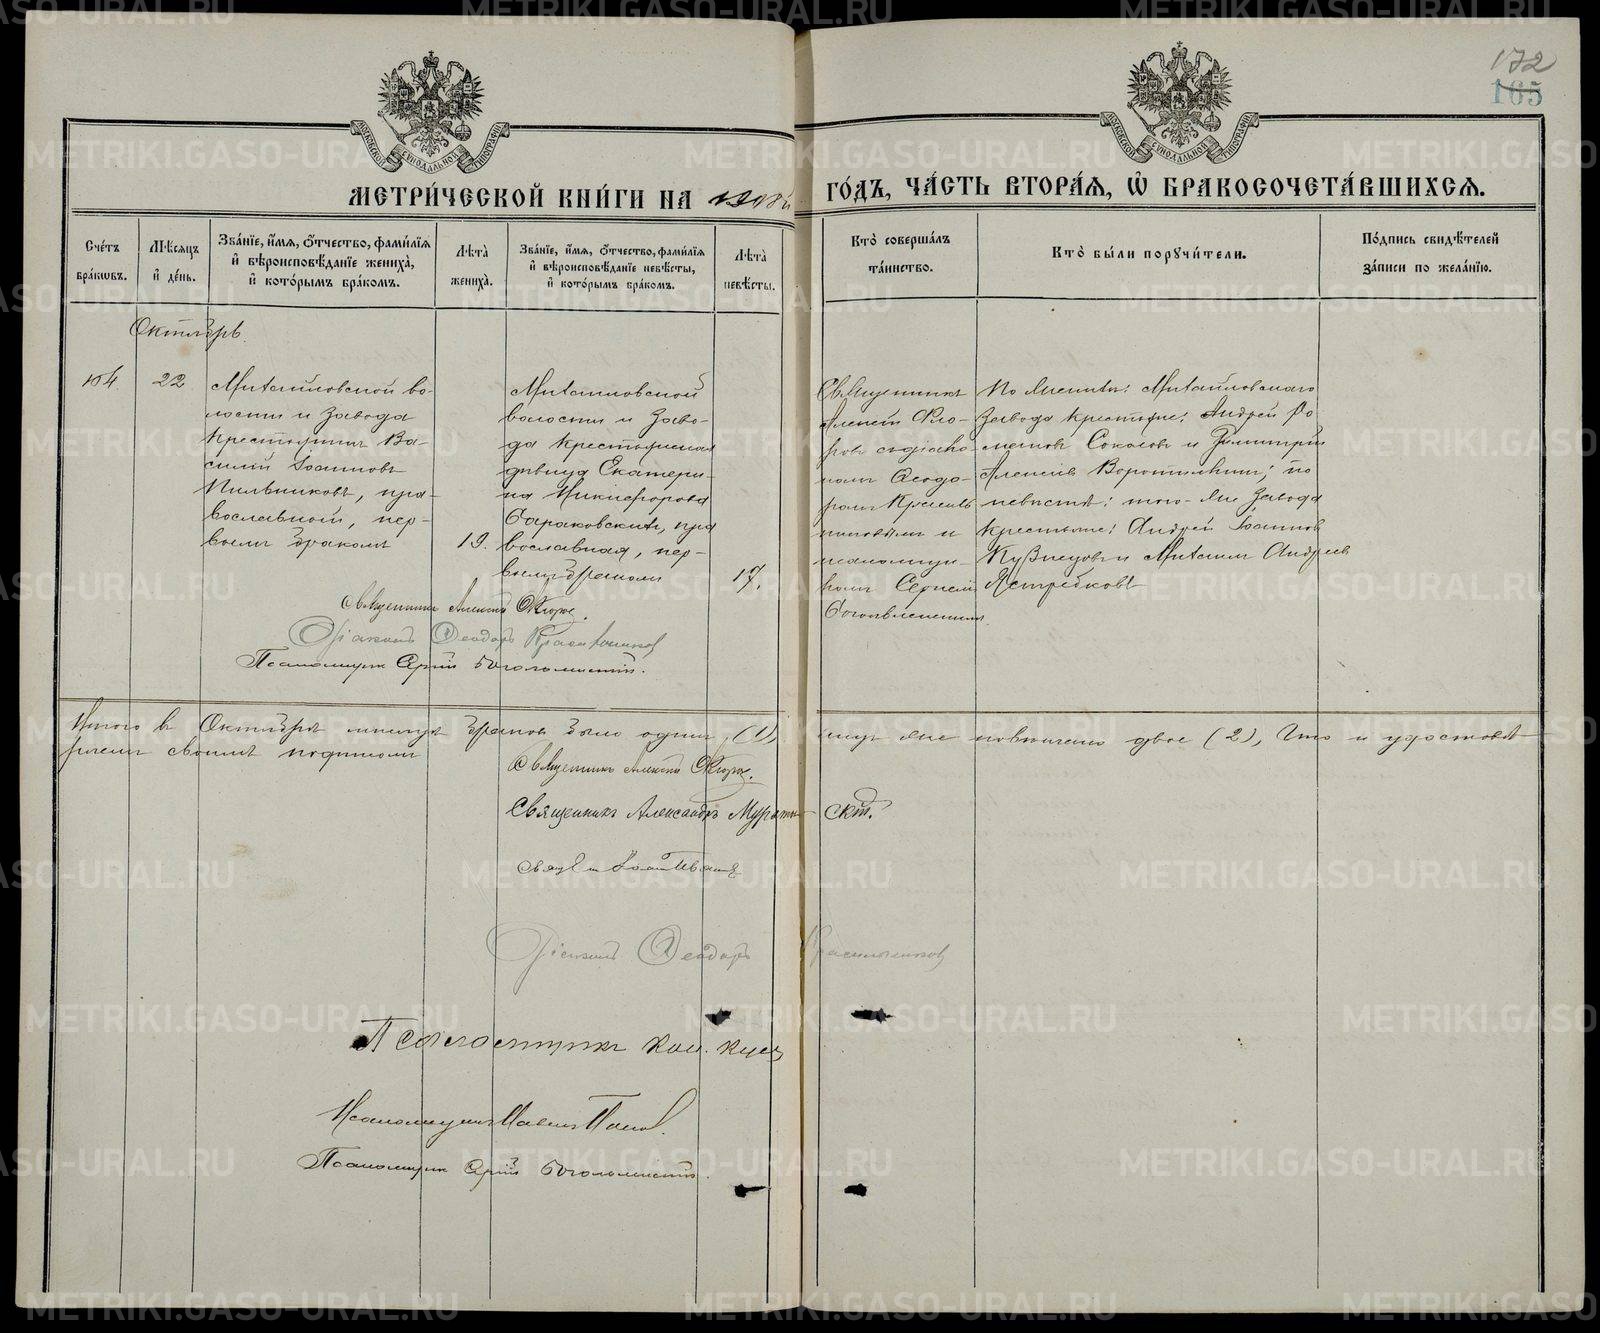 172
165
МЕТРИ́ЧЕСКОЙ КНИ́ГИ НА 1918й ГО́ДЪ, ЧА́СТЬ ВТОРА́Я, Ѡ҆ БРАКОСОЧЕТА́ВШИХСЯ.
Сче́тъ бра́кωвъ.
Мѣ́сяцъ и҆ де́нь.
Зва́нїе, и҆́мя, ѻ҆́тчество, фами́лїя и҆ вѣроисповѣ́данїе жениха̀, и҆ кото́рымъ бра́комъ.
Лѣта̀ жениха̀.
Зва́нїе, и҆́мя, ѻ҆́тчество, фами́лїя и҆ вѣроисповѣ́данїе невѣ́сты, и҆ кото́рымъ бра́комъ.
Лѣта̀ невѣ́сты.
Кто̀ соверша́лъ та́инство.
Кто̀ бы́ли поручи́тели.
По́дпись свидѣ́телей за́писи по жела́нїю.
Октябрь.
104.
22
Михайловской во-
лости и завода
крестьянинъ Ва-
силій Іоанновъ
Пильниковъ, пра-
вославный, пер-
вымъ бракомъ
19.
Михайловской
волости и заво-
да крестьянская
дѣвица Екатери-
на Никифорова
Бараковскихъ, пра
вославная, пер-
вымъ бракомъ
17.
Священникъ
Алексѣй Фло-
ровъ съ діако-
номъ Ѳеодо-
ромъ Красиль
никовымъ и
псаломщи-
комъ Сергіемъ
Богоявленскимъ.
По женихѣ: Михайловскаго
завода крестьяне: Андрей Ро
мановъ Соколовъ и Димитрій
Алексѣевъ Воротилкинъ; по
невѣстѣ: того-же завода
крестьяне: Андрей Іоанновъ
Кузнецовъ и Михаилъ Андреевъ
Ястребковъ
Священникъ Алексѣй Флоровъ.
Діаконъ Ѳеодоръ Красильниковъ
Псаломщик Сергій Богоявленскій.
Итого въ Октябрѣ мѣсяцѣ браковъ было одинъ (1) ими же повѣнчано двое (2), что и удостовѣ-
ряемъ своимъ подписомъ
Священникъ Алексѣй Флоровъ.
Священникъ Александръ Муратовскій.
Діаконъ Ѳеодоръ Красильниковъ
Псаломщикъ
Псаломщикъ Павелъ Попов.
Псаломщик Сергій Богоявленскій.
METRIKI.GASO-URAL.RU